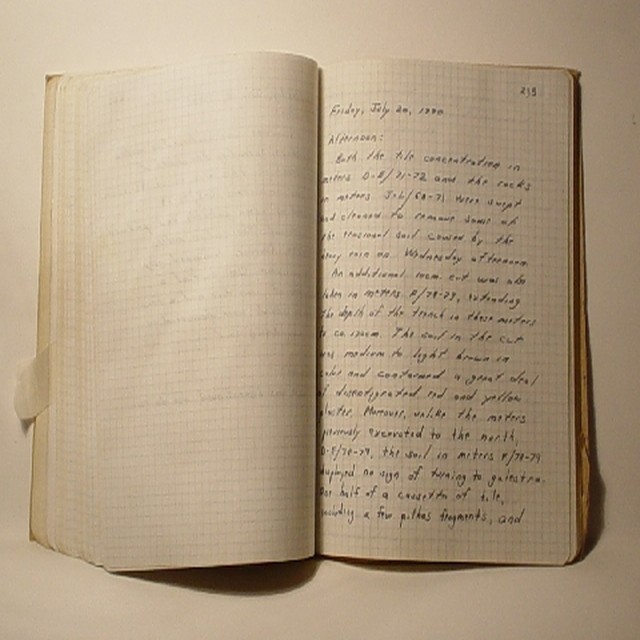 235
Friday, July 20, 1990
Afternoon:
Both the tile concentration in
meters D-E/71-72 and the rocks
in meters J-L/68-71 were swept
and cleaned to remove some of
the erosional soil caused by the
heavy rain on Wednesday afternoon.
An additional cut was also
taken in meters F/78-79, extending
the depth of the trench in these meters
to ca.
The soil in the cut
was medium to light brown in
color and contained a great deal
of disintegrated red and yellow
plaster. Moreover, unlike the meters
previously excavated to the north,
D-E/78-79, the soil in meters F/78-79
displayed no sign of turning to galestra.
One half of a cassetta of tile,
including a few pithos fragments, and